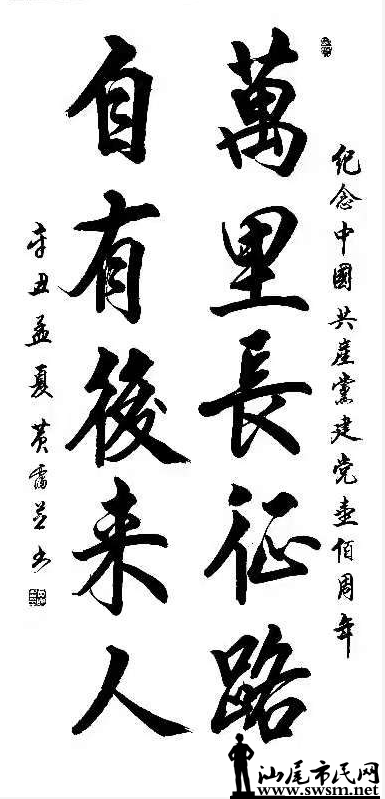 纪念中國共産黨建党壹佰周年
萬里長征路
自有後来人
辛丑孟夏黄书
汕尾市民网
www.swsm.net